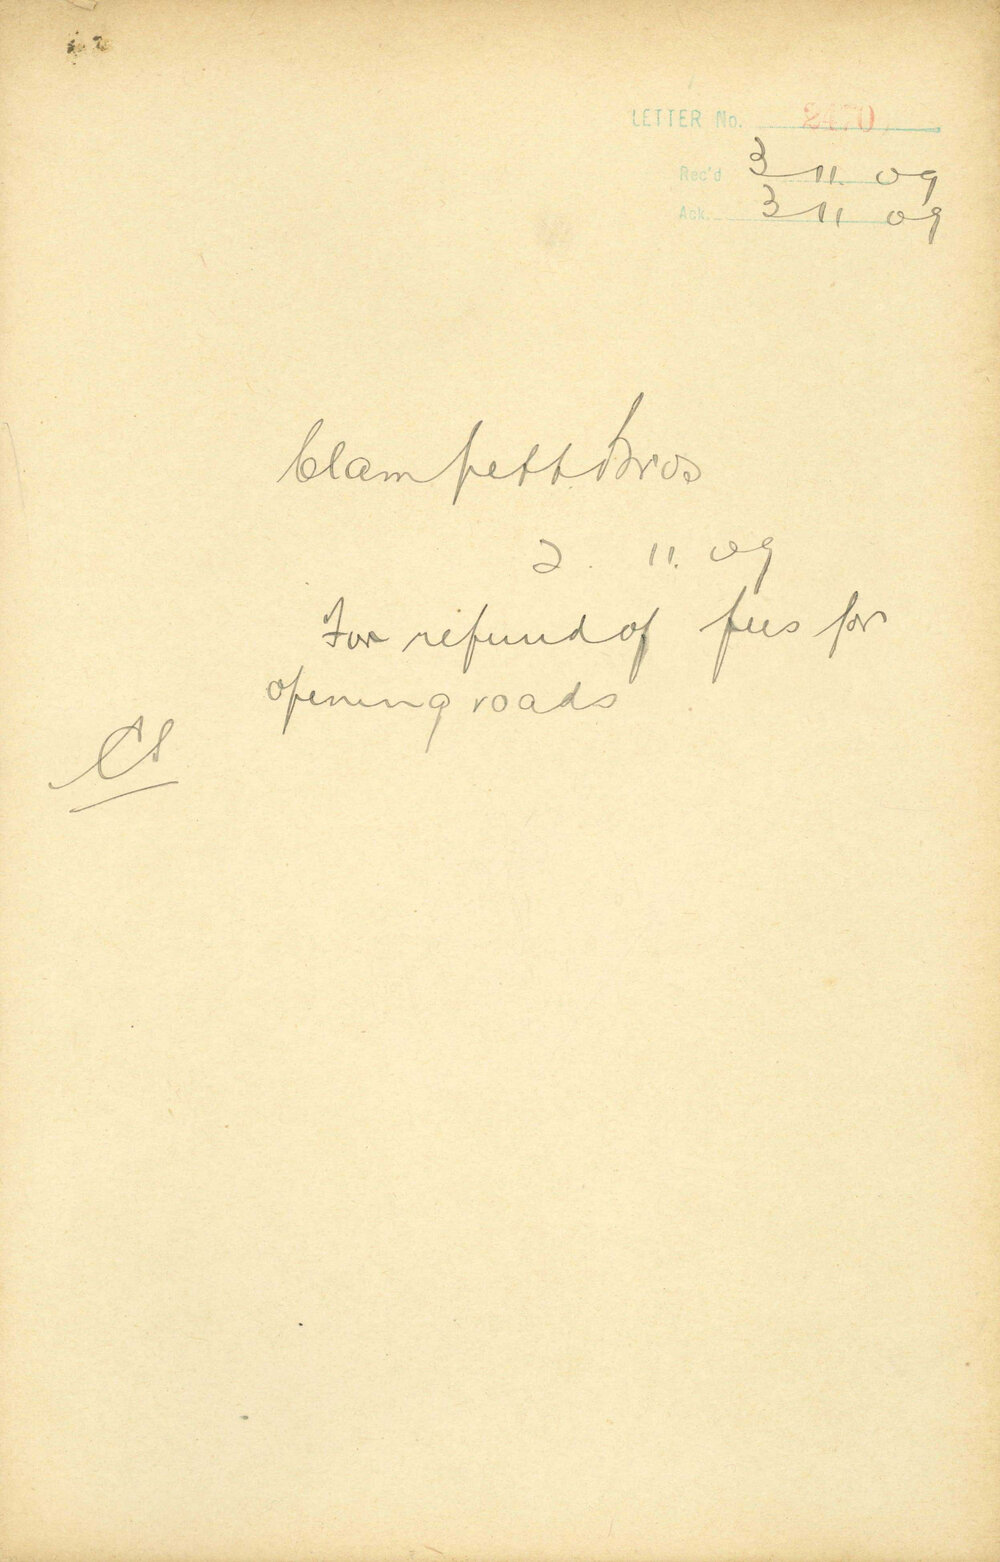 LETTER No. 2470
Rec'd 3 11. 09
Ack. 3 11 09
Clampett Bros
2. 11. 09
For refund of fees for
opening roads